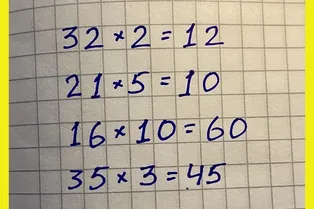 32 × 2 = 12
21 × 5 = 10
16 × 10 = 60
35 × 3 = 45